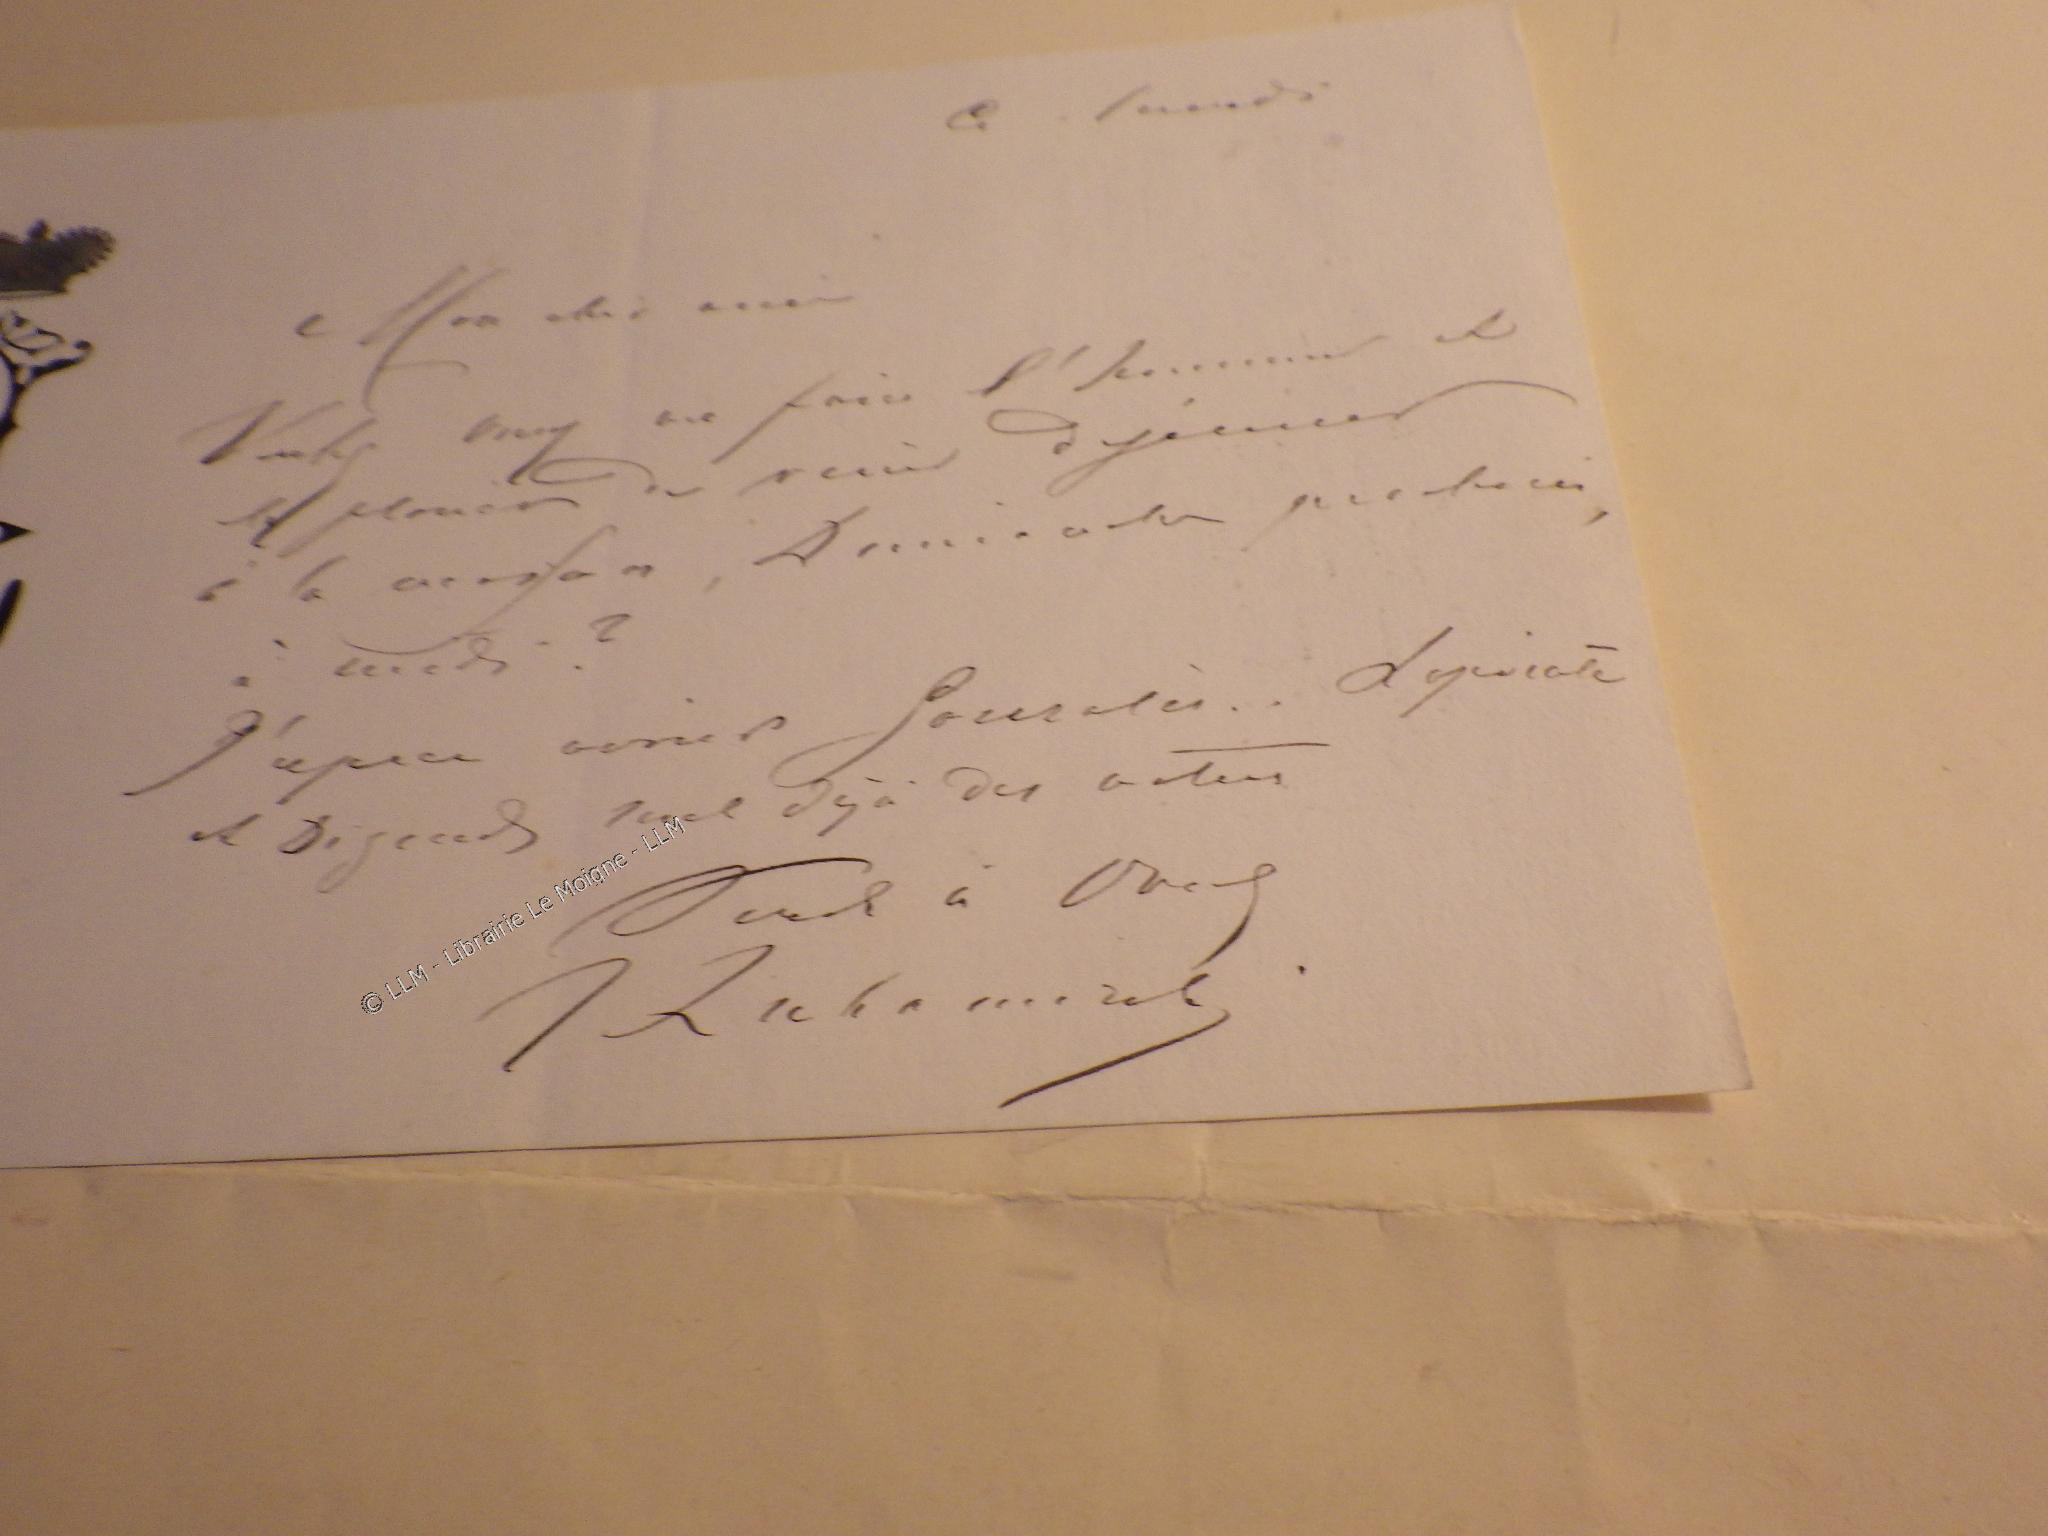 Ce lundi
Mon cher ami
Voulez vous me faire l'honneur et
le plaisir de venir déjeuner
à la maison, Dimanche prochain,
à midi ?
J'espère avoir Gonzalès.. Lapierate
et sont déjà des nôtres
Tout à Vous
© LLM - Librairie Le Moigne - LLM